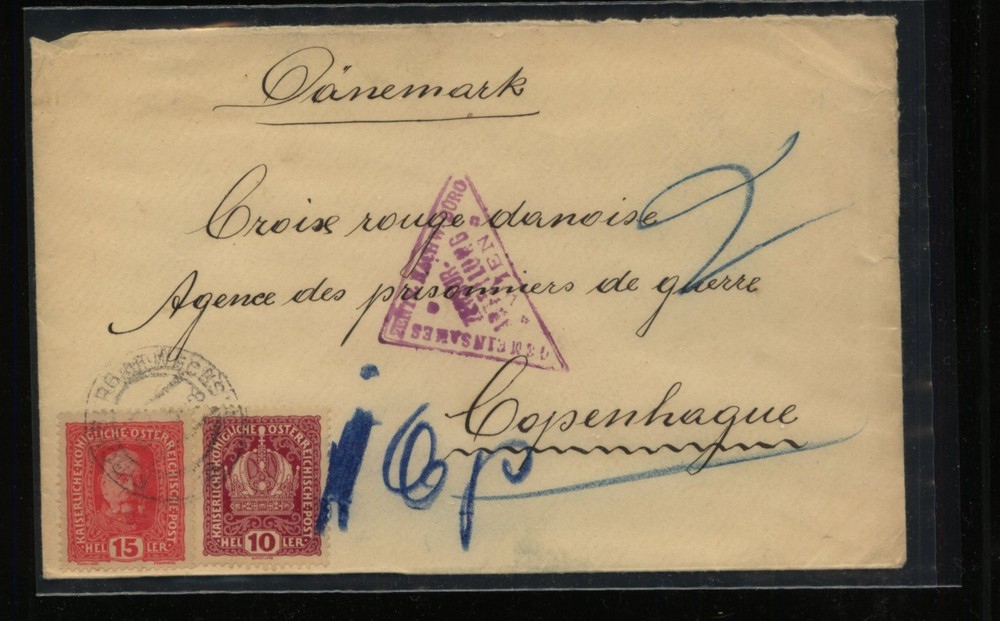 Dänemark
Croix rouge danoise
Agence des prisonniers de guerre
Copenhague
GEMEINSAMES
ZENTRALNACHWEISBÜRO
ZENSUR-
ABTEILUNG
WIEN
2
KAISERLICHE KÖNIGLICHE ÖSTERREICHISCHE POST
HEL 15 LER
KAISERLICHE KÖNIGLICHE ÖSTERREICHISCHE POST
HEL 10 LER